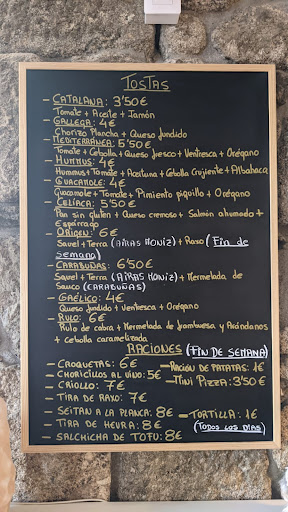 TOSTAS
- CATALANA: 3'50€
Tomate + Aceite + Jamón
- GALLEGA: 4€
Chorizo Plancha + Queso fundido
- MEDITERRÁNEA: 5'50€
Tomate + Cebolla + Queso fresco + Ventresca + Orégano
- HUMMUS: 4€
Hummus + Tomate + Aceituna + Cebolla Crujiente + Albahaca
- GUACAMOLE: 4€
Guacamole + Tomate + Pimiento piquillo + Orégano
- CELÍACA: 5'50€
Pan sin gluten + Queso cremoso + Salmón ahumado +
Espárrago
- ORIGEN: 6€
Savel + Terra (AIRAS MONIZ) + Raxo (Fin de
Semana)
- CARABUÑAS: 6'50€
Savel + Terra (AIRAS MONIZ) + Mermelada de
Sauco (CARABUÑAS)
- GAÉLICO: 4€
Queso fundido + Ventresca + Orégano
- RULO: 6€
Rulo de cabra + Mermelada de frambuesa y Arándanos
+ cebolla caramelizada
RACIONES (FIN DE SEMANA)
- CROQUETAS: 6€ - RACIÓN DE PATATAS: 1€
- CHORICILLOS AL VINO: 5€ - MINI PIZZA: 3'50€
- CRIOLLO: 7€
- TIRA DE RAXO: 7€
- SEITAN A LA PLANCA: 8€ - TORTILLA: 1€
- TIRA DE HEURA: 8€ (TODOS LOS DÍAS)
- SALCHICHA DE TOFU: 8€